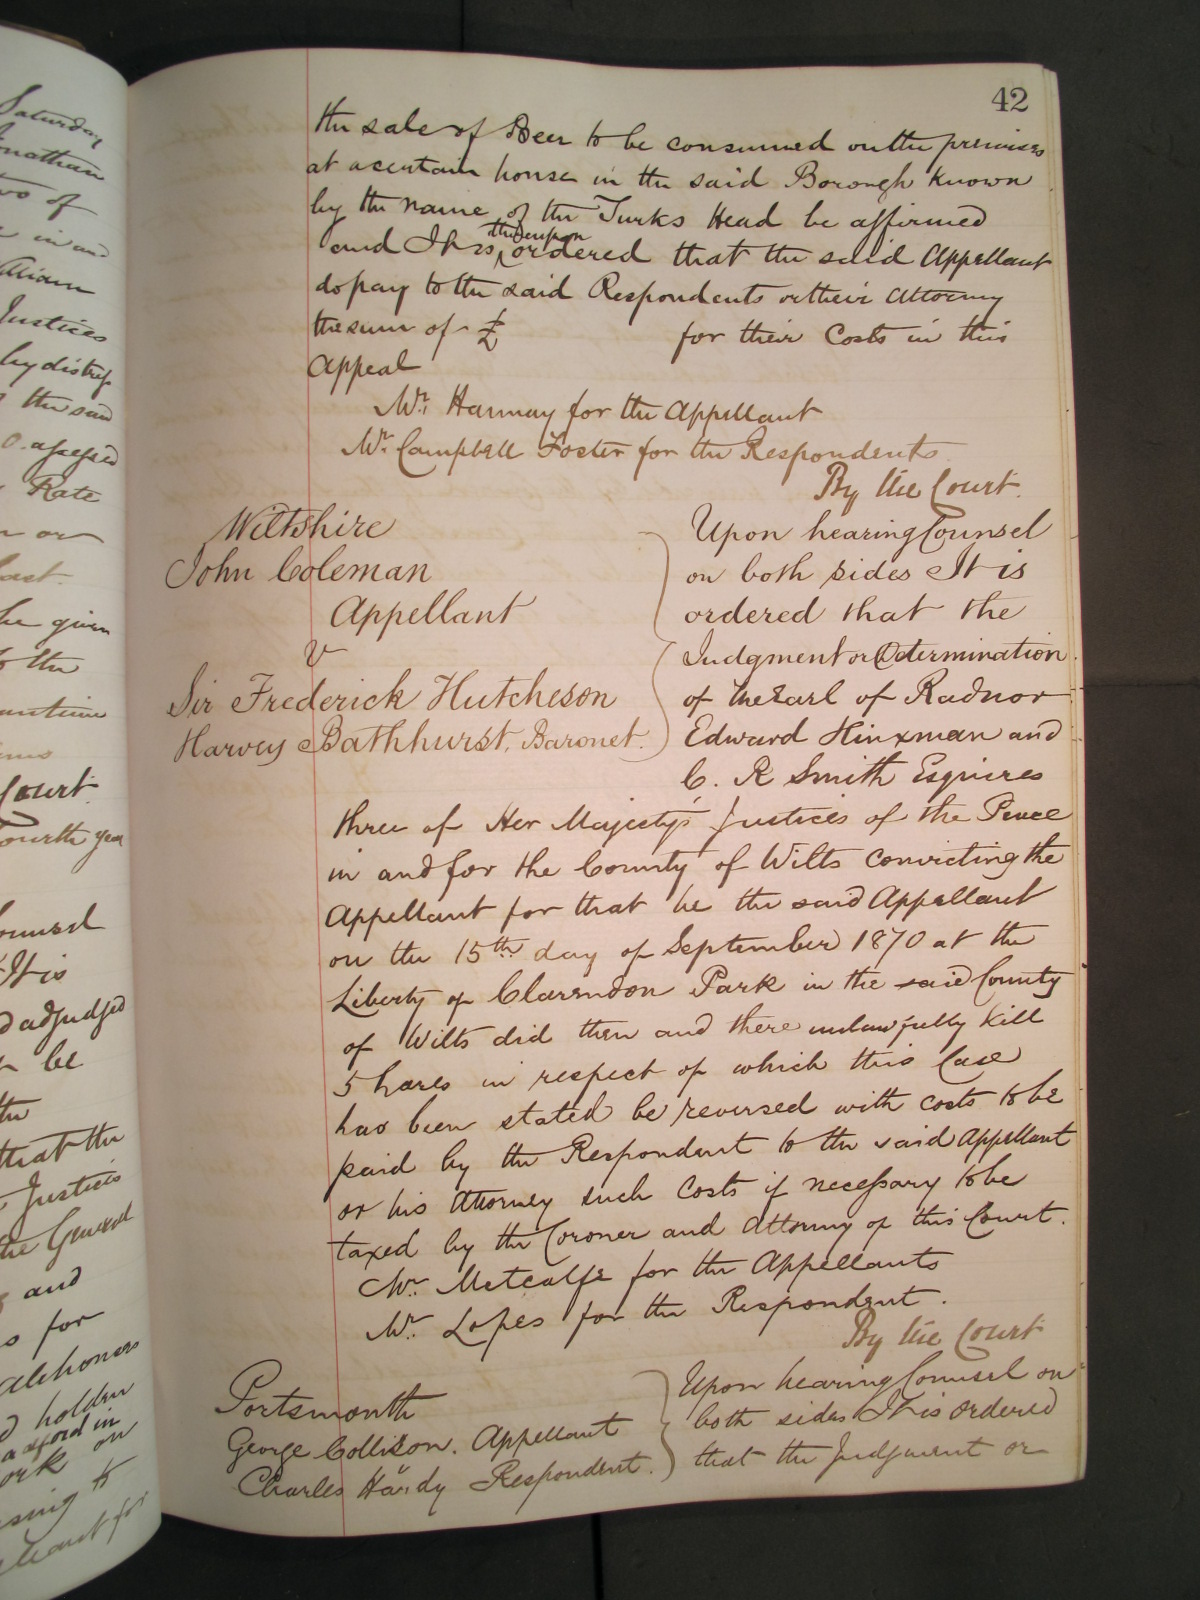 42
the sale of Beer to be consumed on the premises
at a certain house in the said Borough known
by the name of the Turks Head be affirmed
and It is thereupon ordered that the said Appellant
do pay to the said Respondents or their Attorney
the sum of £ for their Costs in this
Appeal
Mr. Hannay for the Appellant
Mr. Campbell Foster for the Respondents
By the Court.
Wiltshire
John Coleman
Appellant
v
Sir Frederick Hutcheson
Harvey Bathhurst, Baronet.
Upon hearing Counsel
on both sides It is
ordered that the
Judgment or Determination
of the Earl of Radnor
Edward Hinxman and
C. R Smith Esquires
three of Her Majesty's Justices of the Peace
in and for the County of Wilts convicting the
Appellant for that he the said Appellant
on the 15th day of September 1870 at the
Liberty of Clarendon Park in the said County
of Wilts did then and there unlawfully kill
5 hares in respect of which this Case
has been stated be reversed with costs to be
paid by the Respondent to the said Appellant
or his Attorney such Costs if necessary to be
taxed by the Coroner and Attorney of this Court.
Mr. Metcalfe for the Appellants
Mr. Lopes for the Respondent.
By the Court
Portsmouth
George Collison. Appellant
Charles Hardy Respondent.
Upon hearing Counsel on
both sides It is ordered
that the Judgment or
Saturday
Jonathan
two of
in and
William
Justices
by distress
the said
assessed
Rate
or
last.
be given
to the
Court
fourth year
Counsel
It is
adjudged
be
the
that the
Justices
the General
and
for
holden
in
on
to